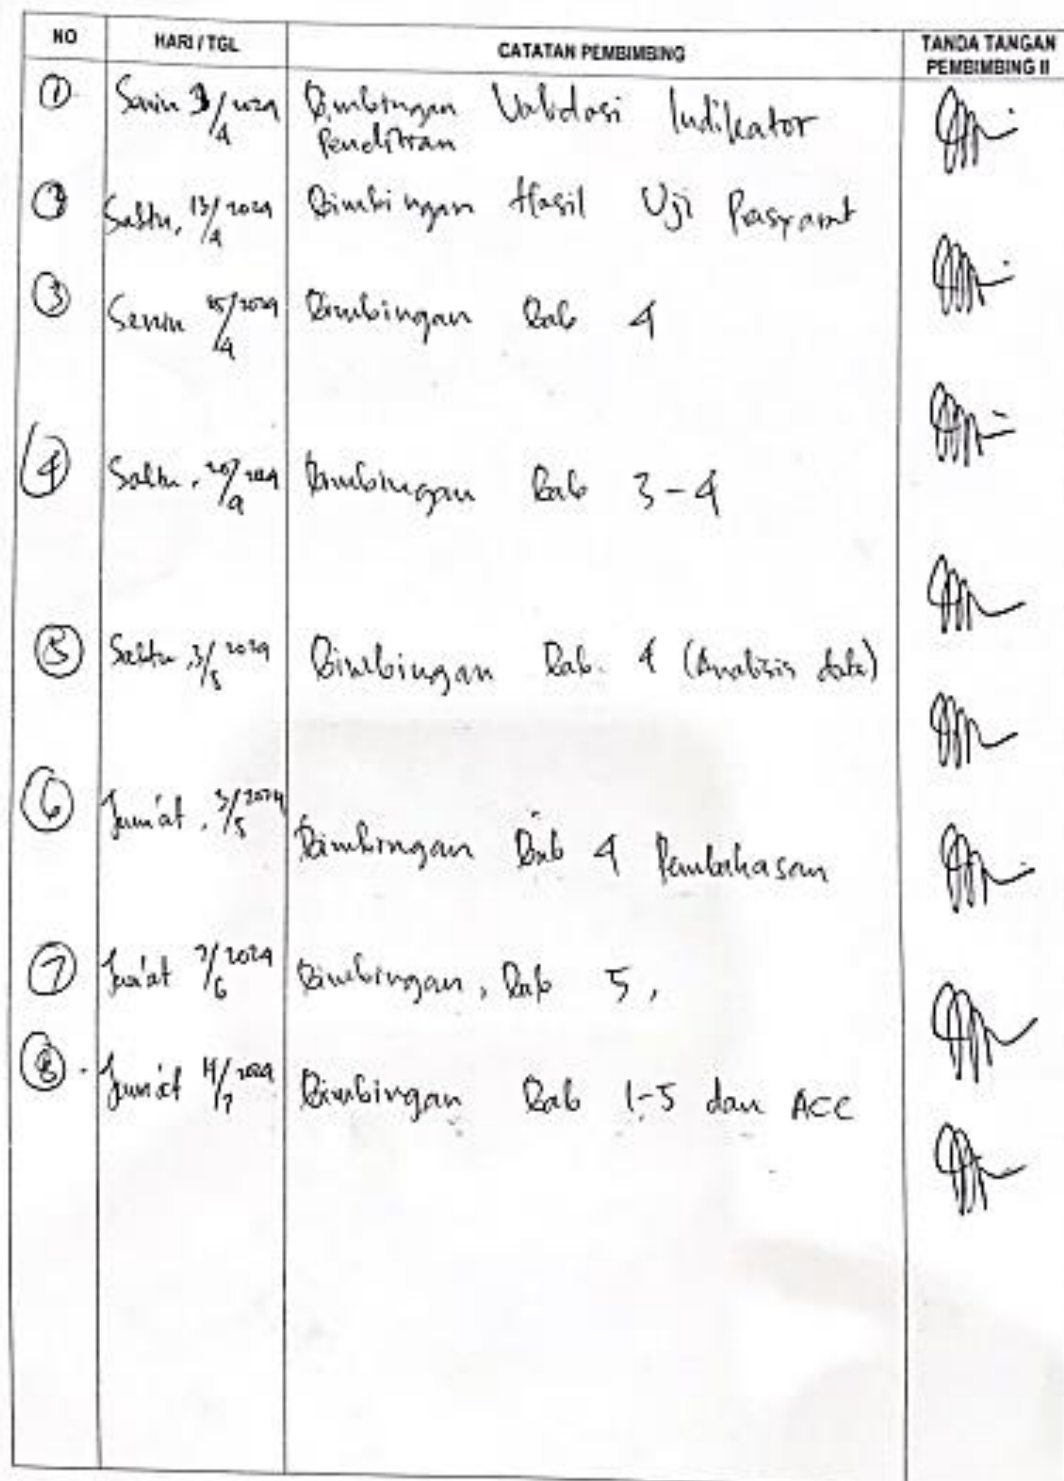 NO HARI / TGL CATATAN PEMBIMBING TANDA TANGAN PEMBIMBING II
① Senin 3/4 2024 Bimbingan Validasi Indikator
Penelitian
② Sabtu, 13/4 2024 Bimbingan Hasil Uji Prasyarat
③ Senin 15/4 2024 Bimbingan Bab 4
④ Sabtu, 20/4 2024 Bimbingan Bab 3-4
⑤ Sabtu, 3/5 2024 Bimbingan Bab. 4 (Analisis data)
⑥ Jum'at, 3/5 2024 Bimbingan Bab 4 Pembahasan
⑦ Jum'at 7/6 2024 Bimbingan, Bab 5,
⑧. Jum'at 2024 Bimbingan Bab 1-5 dan ACC